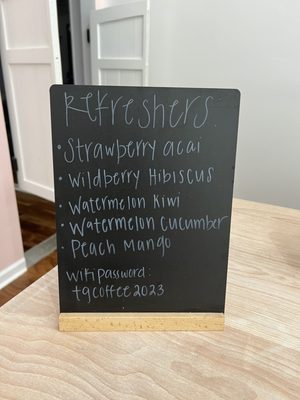 Refreshers:
• Strawberry acai
• Wildberry Hibiscus
• Watermelon Kiwi
• Watermelon Cucumber
• Peach Mango
Wifi password:
tgcoffee2023